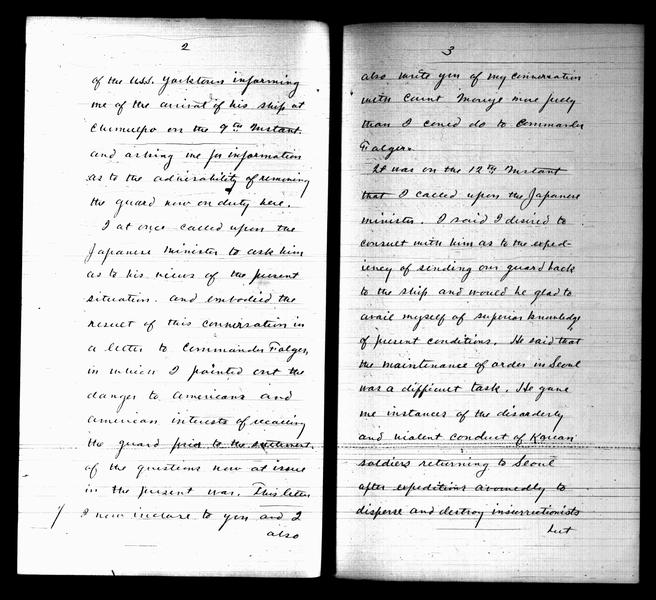 2
of the U.S.S. Yorktown informing
me of the arrival of his ship at
Chemulpo on the 9th Instant.
and asking me for information
as to the advisability of removing
the guard now on duty here.
I at once called upon the
Japanese minister to ask him
as to his views of the present
situation. and embodied the
result of this conversation in
a letter to Commander Folger,
in which I pointed out the
danger to Americans and
American interests of recalling
the guard prior to the settlement
of the questions now at issue
in the present war. This letter
I now inclose to you and I
also
3
also write you of my conversation
with Count Inouye more fully
than I could do to Commander
Folger.
It was on the 12th Instant
that I called upon the Japanese
minister. I said I desired to
consult with him as to the exped-
iency of sending our guard back
to the ship and would be glad to
avail myself of superior knowledge
of present conditions. He said that
the maintenance of order in Seoul
was a difficult task. He gave
me instances of the disorderly
and violent conduct of Korean
soldiers returning to Seoul
after expeditions avowedly to
disperse and destroy insurrectionists
but